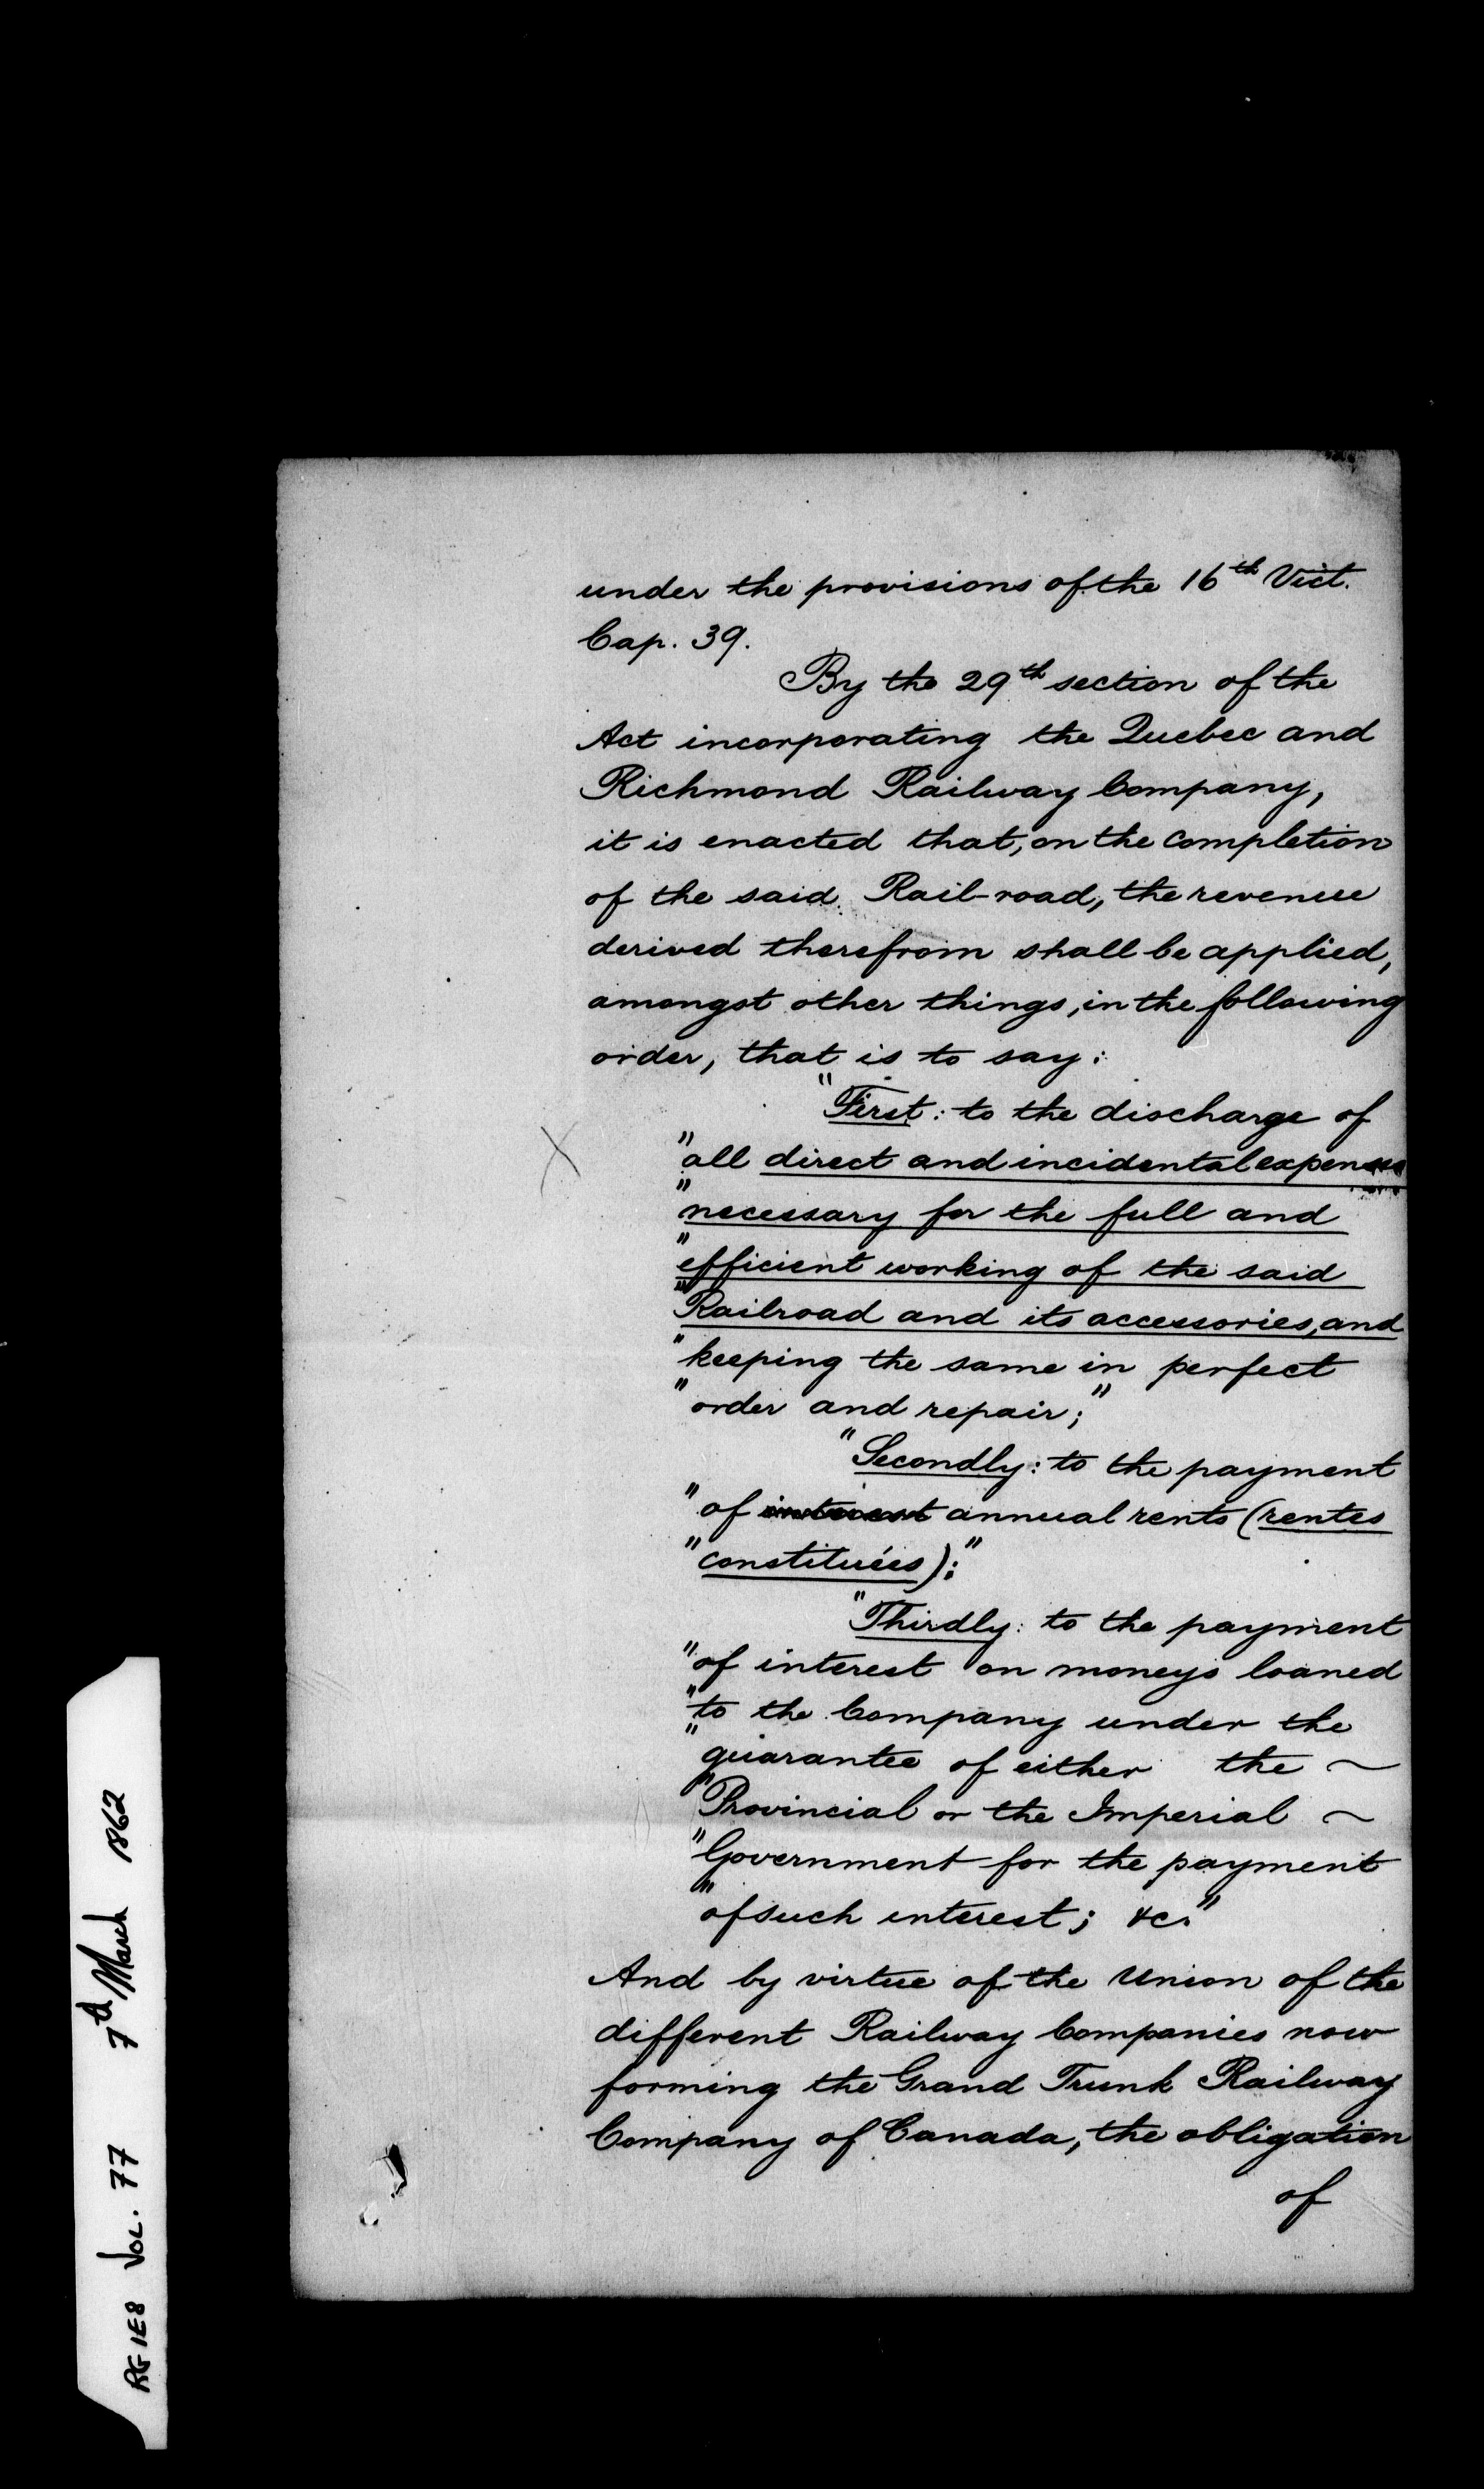 under the provisions of the 16th Vict.
Cap. 39.
By the 29th section of the
Act incorporating the Quebec and
Richmond Railway Company,
it is enacted that, on the completion
of the said Rail-road, the revenue
derived therefrom shall be applied,
amongst other things, in the following
order, that is to say:
"First: to the discharge of
"all direct and incidental expenses
"necessary for the full and
"efficient working of the said
"Railroad and its accessories, and
"keeping the same in perfect
"order and repair;"
"Secondly: to the payment
"of interest annual rents (rentes
"constituées);"
"Thirdly: to the payment
"of interest on moneys loaned
"to the Company under the
"guarantee of either the ~
"Provincial or the Imperial ~
"Government for the payment
"of such interest; &c."
And by virtue of the Union of the
different Railway Companies now
forming the Grand Trunk Railway
Company of Canada, the obligation
of
RG 1E8 VOL. 77 7th March 1862